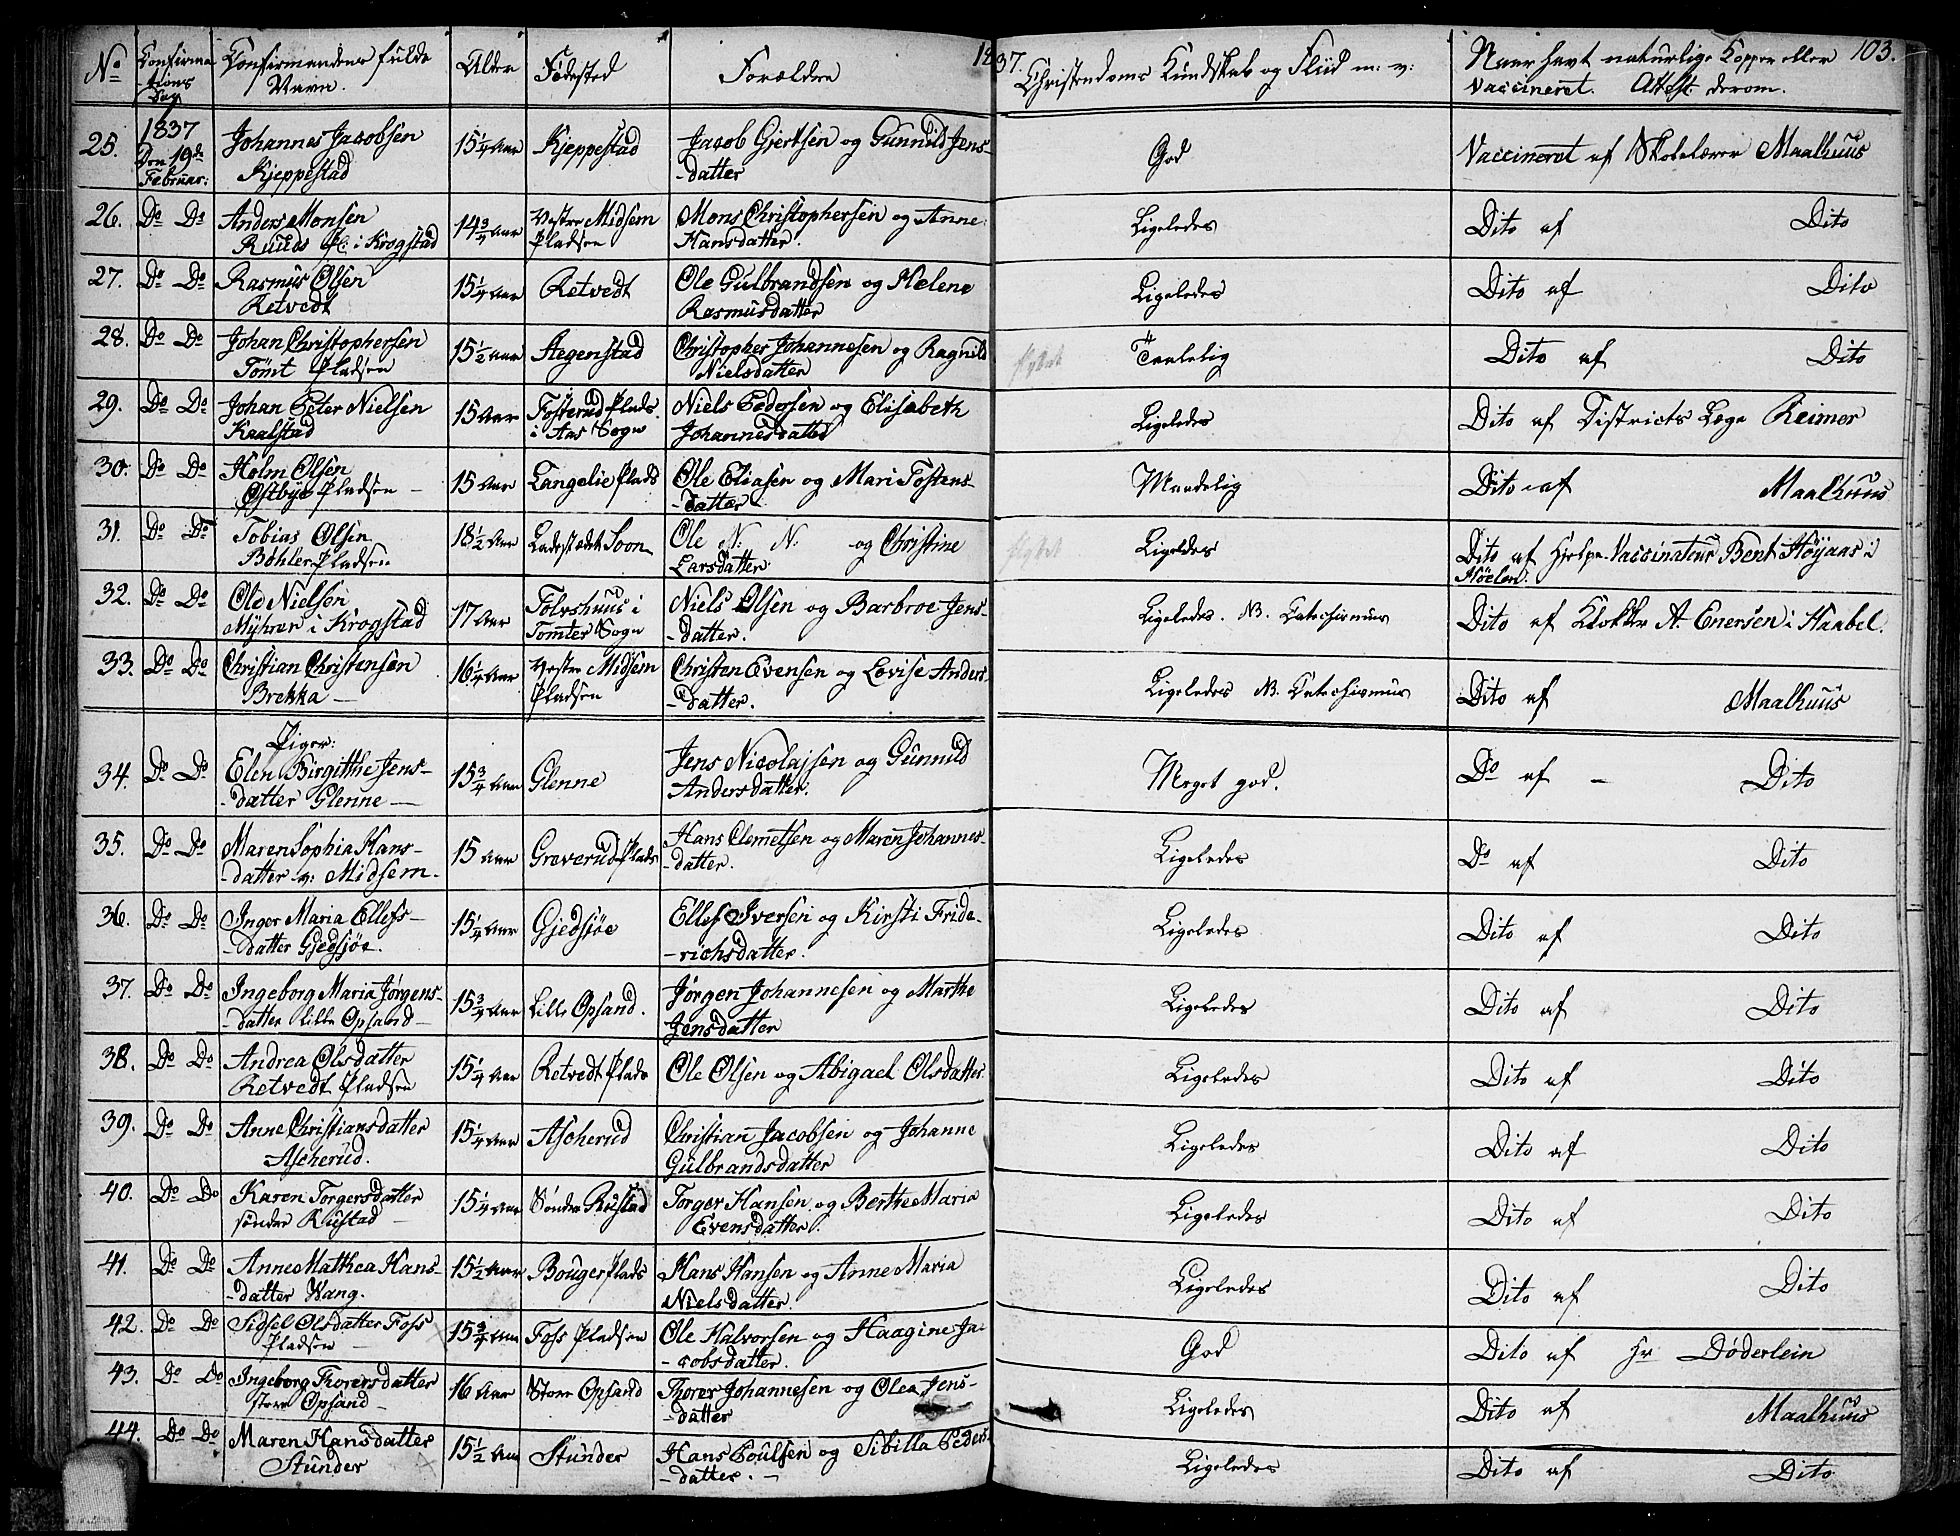 No Confirmations Dag Confirmandens fulde Navn. Alder Fødested Forældre 1837. Christendoms Kundskab og Fliid m: v: Naar havt naturlige Kopper eller Vaccineret. Attest derom. 103.
25. 1837 Den 19de Februar: Johannes Jacobsen Kjeppestad 15 1/4 Aar Kjeppestad Jacob Gjertsen og Gunnild Jens-datter God Vaccineret af Skolelærer Maalhuus
26. Do Do Anders Monsen Ruuds Pl: i Krogstad 14 3/4 Aar Vestre Midsem Pladsen Mons Christophersen og Anne Hansdatter. Ligeledes Dito af Dito
27. Do Do Rasmus Olsen Retvedt 15 1/4 Aar Retvedt Ole Gulbrandsen og Helene Rasmusdatter Ligeledes Dito af Dito
28. Do Do Johan Christophersen Tomt Pladsen 15 1/2 Aar Aegenstad Christopher Johannesen og Ragnild Nielsdatter flyttet Taalelig Dito af Dito
29. Do Do Johan Peter Nielsen Kaalstad 15 Aar Fosterud Plads i Aas Sogn Niels Pedersen og Elisabeth Johannesdatter Ligeledes Dito af Districts Læge Reimer
30. Do Do Holm Olsen Østbye Pladsen – 15 Aar Langelie Plads Ole Eliasen og Mari Tostens-datter Maadelig Dito af Maalhuus
31. Do Do Tobias Olsen Bøhler Pladsen 18 1/2 Aar Ladestedet Soon Ole N: N: og Christine Larsdatter flyttet Ligeledes Dito af Hjelpe-Vaccinateur Bent Høyaas i Hølen.
32. Do Do Ole Nielsen Myhrer i Krogstad 17 Aar Tolvshuus i Tomter Sogn Niels Olsen og Barbroe Jens-datter. Ligeledes. NB. Catechismus Dito af Klokker A. Enersen i Haabel.
33. Do Do Christian Christensen Brekka – 16 1/4 Aar Vestre Midsem Pladsen Christen Evensen og Lovise Anders-datter. Ligeledes NB. Catechismus Dito af Maalhuus
Piger:
34. Do Do Elen Birgitthe Jens-datter Glenne – 15 3/4 Aar Glenne Jens Nicolajsen og Gunnild Andersdatter. Meget god. Do af – Dito
35. Do Do Maren Sophia Hans-datter v: Midsem. 15 Aar Greverud Plads Hans Clemetsen og Maren Johannes-datter. Ligeledes Do af Dito
36. Do Do Inger Maria Ellefs-datter Gjedsjøe. 15 1/4 Aar Gjedsjøe Ellef Iversen og Kirsti Fride-richsdatter. Ligeledes Dito af Dito
37. Do Do Ingeborg Maria Jørgens-datter lille Opsand – 15 3/4 Aar Lille Opsand. Jørgen Johannesen og Marthe Jensdatter Ligeledes Dito af Dito
38. Do Do Andrea Olsdatter Retvedt Pladsen 15 1/4 Aar Retvedt Plads Ole Olsen og Abigael Olsdatter Ligeledes Dito af Dito
39. Do Do Anne Christiansdatter Ascherud. 15 1/4 Aar Ascherud Christian Jacobsen og Johanne Gulbrandsdatter Ligeledes Dito af Dito
40. Do Do Karen Torgersdatter sønder Rustad – 15 1/4 Aar Sønder Rustad Torger Hansen og Berthe Maria Evensdatter. Ligeledes Dito af Dito
41. Do Do Anne Mathea Hans-datter Wang. 15 1/2 Aar Bouger Plads Hans Hansen og Anne Maria Nielsdatter. Ligeledes Dito af Dito
42. Do Do Sidsel Olsdatter Foss Pladsen – 15 3/4 Aar Foss Pladsen Ole Halvorsen og Haagine Ja-cobsdatter. God Dito af Hr Døderlein
43. Do Do Ingeborg Thorersdatter store Opsand – 16 Aar Store Opsand Thorer Johannesen og Olea Jens-datter Ligeledes Dito af Maalhuus
44. Do Do Maren Hansdatter Stunder 15 1/2 Aar Stunder Hans Poulsen og Sibilla Peders-datter. – Ligeledes Dito af Dito